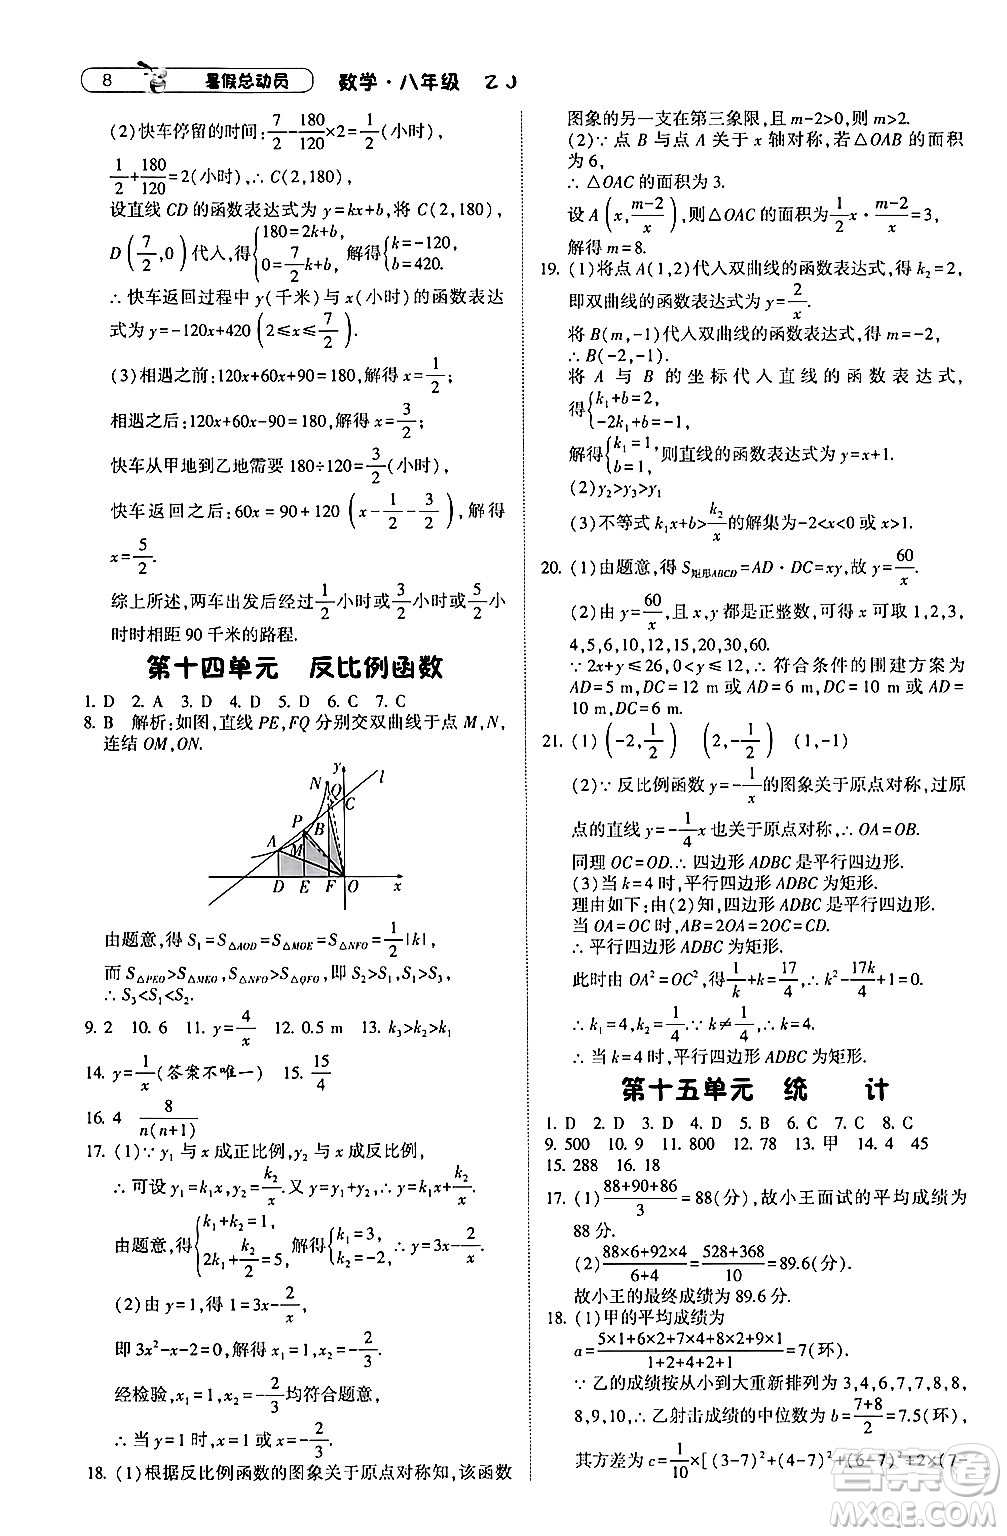 8 暑假总动员 数学·八年级 ZJ
(2)快车停留的时间:7/2-180/120×2=1/2(小时),
1/2+180/120=2(小时),∴C(2,180),
设直线 CD 的函数表达式为 y=kx+b,将 C(2,180),
D(7/2,0)代入,得{180=2k+b, 0=7/2k+b,解得{k=-120, b=420.
∴快车返回过程中 y(千米)与 x(小时)的函数表达
式为 y=-120x+420(2≤x≤7/2).
(3)相遇之前:120x+60x+90=180,解得 x=1/2;
相遇之后:120x+60x-90=180,解得 x=3/2;
快车从甲地到乙地需要 180÷120=3/2(小时),
快车返回之后:60x=90+120(x-1/2-3/2),解得
x=5/2.
综上所述,两车出发后经过1/2小时或3/2小时或5/2小
时时相距 90 千米的路程.
第十四单元 反比例函数
1. D 2. A 3. D 4. D 5. D 6. C 7. C
8. B 解析:如图,直线 PE,FQ 分别交双曲线于点 M,N,
连结 OM,ON.
y l
N Q
C
P B
A M
D E F O x
由题意,得 S₁=S△AOD=S△MOE=S△NFO=1/2|k|,
而 S△PEO>S△MEO,S△NFO>S△QFO,即 S₂>S₁,S₁>S₃,
∴S₃<S₁<S₂.
9. 2 10. 6 11. y=4/x 12. 0.5 m 13. k₃>k₂>k₁
14. y=1/x(答案不唯一) 15. 15/4
16. 4 8/n(n+1)
17. (1)∵y₁ 与 x 成正比例,y₂ 与 x 成反比例,
∴可设 y₁=k₁x,y₂=k₂/x.又 y=y₁+y₂,∴y=k₁x+k₂/x.
由题意,得{k₁+k₂=1, 2k₁+k₂/2=5,解得{k₁=3, k₂=-2.∴y=3x-2/x.
(2)由 y=1,得 1=3x-2/x,
即 3x²-x-2=0,解得 x₁=1,x₂=-2/3.
经检验,x₁=1,x₂=-2/3均符合题意,
∴当 y=1 时,x=1 或 x=-2/3.
18. (1)根据反比例函数的图象关于原点对称知,该函数
图象的另一支在第三象限,且 m-2>0,则 m>2.
(2)∵点 B 与点 A 关于 x 轴对称,若△OAB 的面积
为 6,
∴△OAC 的面积为 3.
设 A(x,m-2/x),则△OAC 的面积为1/2x·m-2/x=3,
解得 m=8.
19. (1)将点 A(1,2)代入双曲线的函数表达式,得 k₂=2,
即双曲线的函数表达式为 y=2/x.
将 B(m,-1)代入双曲线的函数表达式,得 m=-2,
∴B(-2,-1).
将 A 与 B 的坐标代入直线的函数表达式,
得{k₁+b=2, -2k₁+b=-1,
解得{k₁=1, b=1,则直线的函数表达式为 y=x+1.
(2)y₂>y₃>y₁
(3)不等式 k₁x+b>k₂/x的解集为-2<x<0 或 x>1.
20. (1)由题意,得 S矩形ABCD=AD·DC=xy,故 y=60/x.
(2)由 y=60/x,且 x,y 都是正整数,可得 x 可取 1,2,3,
4,5,6,10,12,15,20,30,60.
∵2x+y≤26,0<y≤12,∴符合条件的围建方案为
AD=5 m,DC=12 m或AD=6 m,DC=10 m或AD=
10 m,DC=6 m.
21. (1)(-2,1/2) (2,-1/2) (1,-1)
(2)∵反比例函数 y=-1/x的图象关于原点对称,过原
点的直线 y=-1/4x 也关于原点对称,∴OA=OB.
同理 OC=OD.∴四边形 ADBC 是平行四边形.
(3)当 k=4 时,平行四边形 ADBC 为矩形.
理由如下:由(2)知,四边形 ADBC 为平行四边形.
当 OA=OC 时,AB=2OA=2OC=CD.
∴平行四边形 ADBC 为矩形.
此时由 OA²=OC²,得1/k+k=17/4,∴k²-17k/4+1=0.
∴k₁=4,k₂=1/4.∵k≠1/4,∴k=4.
∴当 k=4 时,平行四边形 ADBC 为矩形.
第十五单元 统 计
1. D 2. D 3. D 4. D 5. B 6. C 7. C 8. C
9. 500 10. 9 11. 800 12. 78 13. 甲 14. 4 45
15. 288 16. 18
17. (1)88+90+86/3=88(分),故小王面试的平均成绩为
88 分.
(2)88×6+92×4/6+4=528+368/10=89.6(分),
故小王的最终成绩为 89.6 分.
18. (1)甲的平均成绩为
a=5×1+6×2+7×4+8×2+9×1/1+2+4+2+1=7(环).
∵乙的成绩按从小到大重新排列为 3,4,6,7,7,8,8,
8,9,10,∴乙射击成绩的中位数 b=7+8/2=7.5(环),
其方差为 c=1/10×[(3-7)²+(4-7)²+(6-7)²+2×(7-
答案圈
MXQE.COM